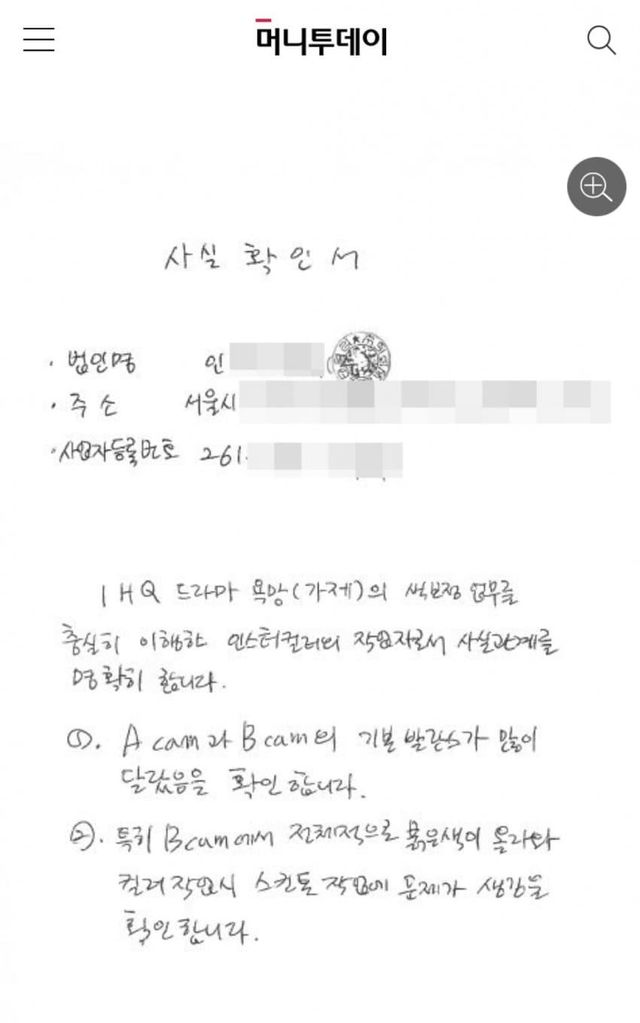 머니투데이
사실 확인서
· 법인명 인
· 주소 서울시
· 사업자등록번호 261.
IHQ 드라마 욕망(가제)의 색보정 업무를
충실히 이행한 인스터컬러의 작업자로서 사실관계를
명확히 합니다.
①. A cam과 B cam의 기본 발란스가 많이
달랐음을 확인합니다.
②. 특히 B cam에서 전체적으로 붉은색이 올라와
컬러작업시 스킨톤 작업에 문제가 생김을
확인합니다.